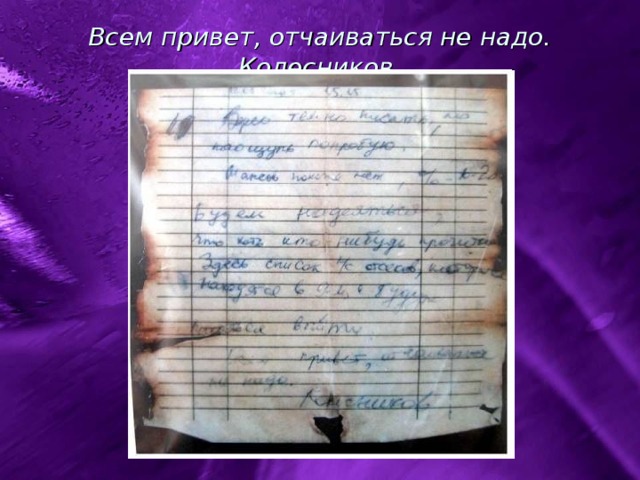 Всем привет, отчаиваться не надо.
Колесников
15.15
Здесь темно писать, но
наощупь попробую.
Шансов похоже нет, %
Будем надеяться,
что хоть кто нибудь прочитает
Здесь список л/с отсеков, которые
находятся в 9-м и будут
выйти
привет, отчаиваться
не надо.
Колесников